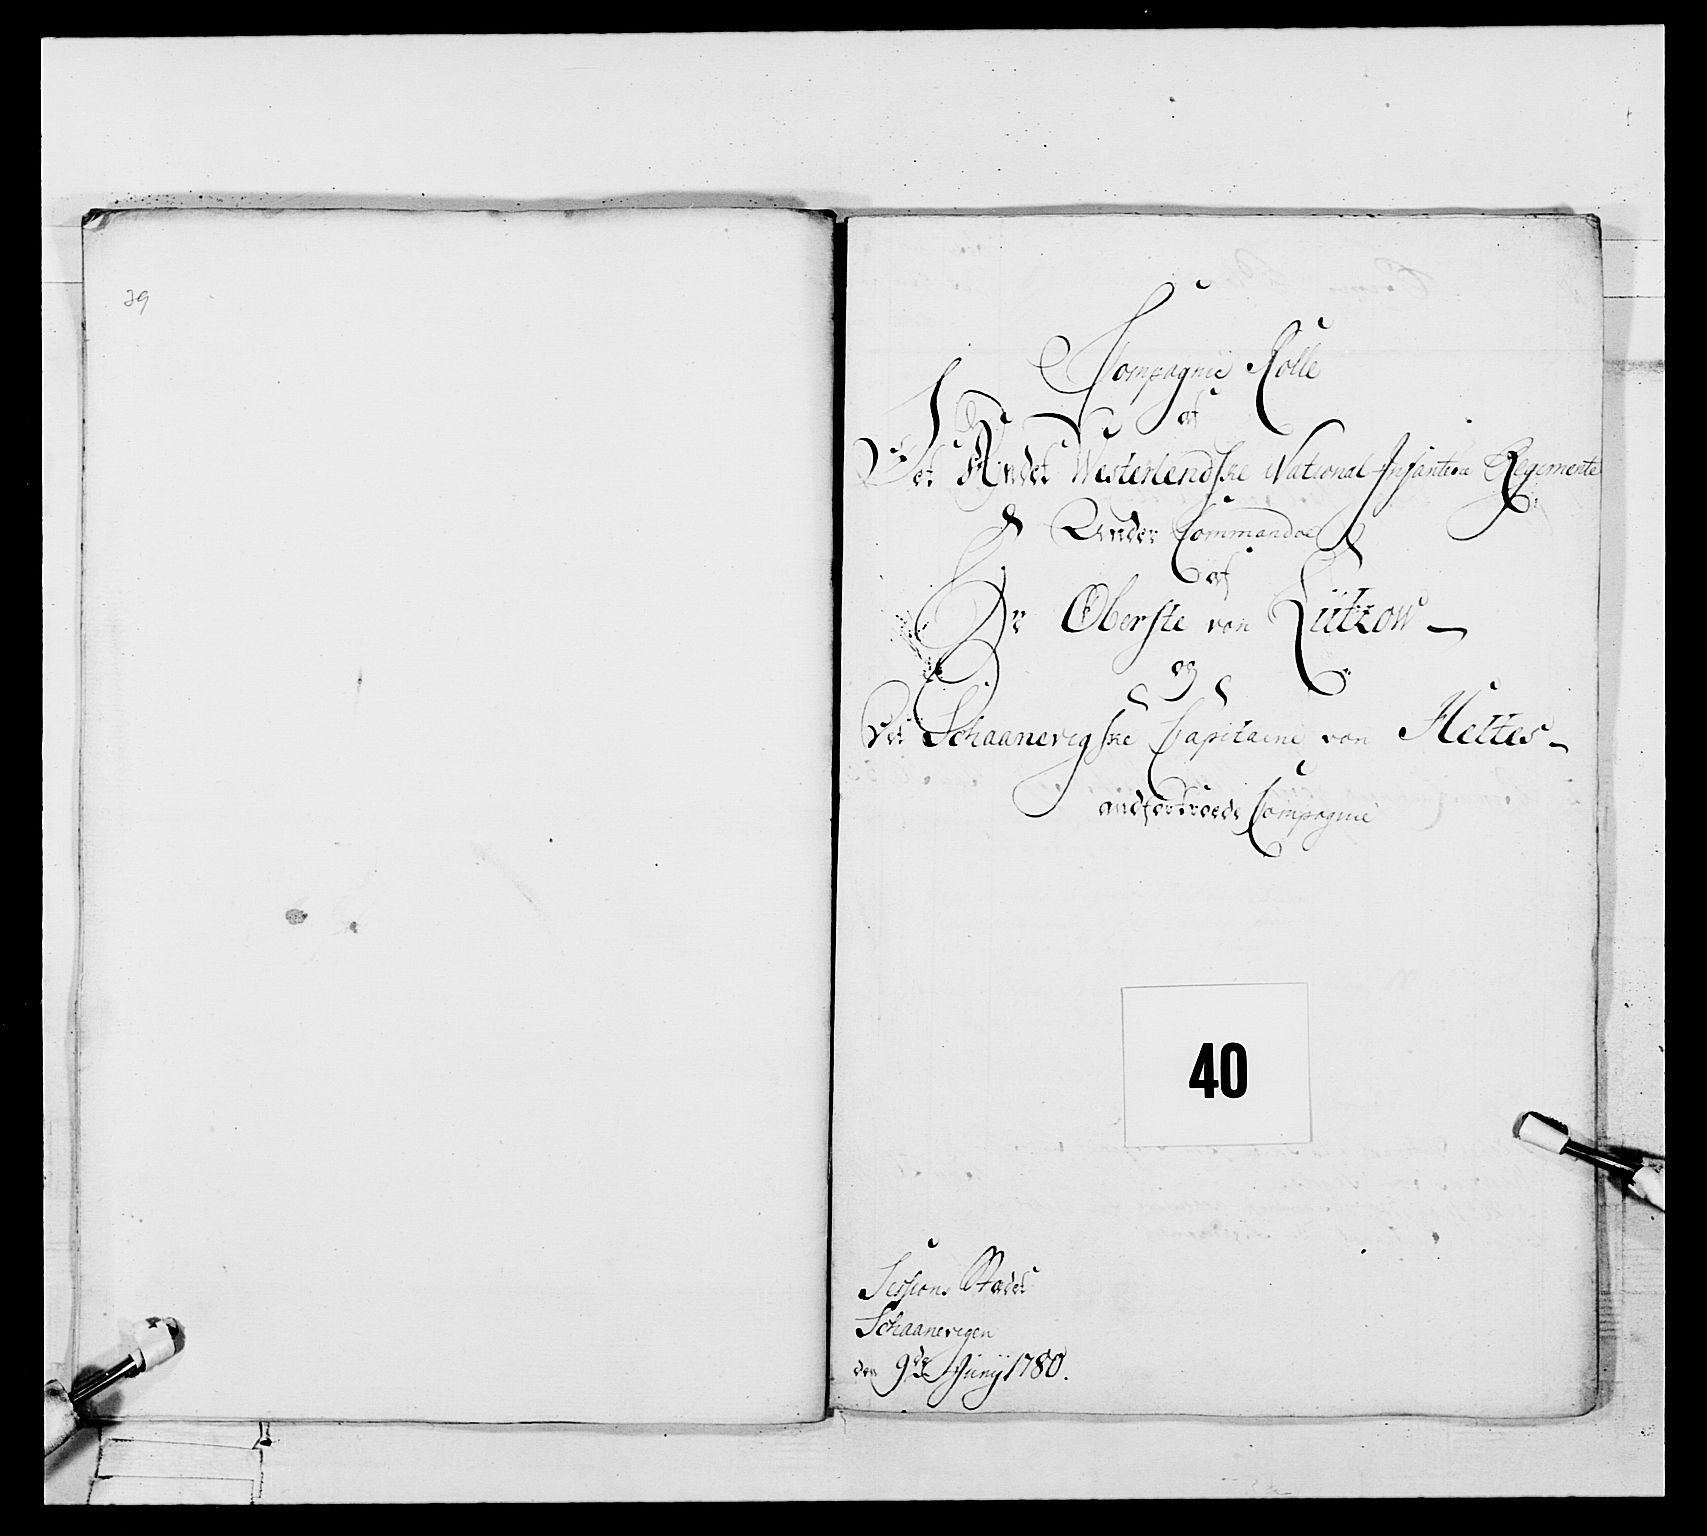 39
Compagnie Rolle
af
Det Andet Westerlendske National Infanterie Regimente
Under Commando
af
Hr Oberste von Lützow
og
Det Schaanevigske Capitaine von Heltes
andfortroede Compagnie
40
Sessions Stædet
Schaanevigen
den 9de Junÿ 1780.